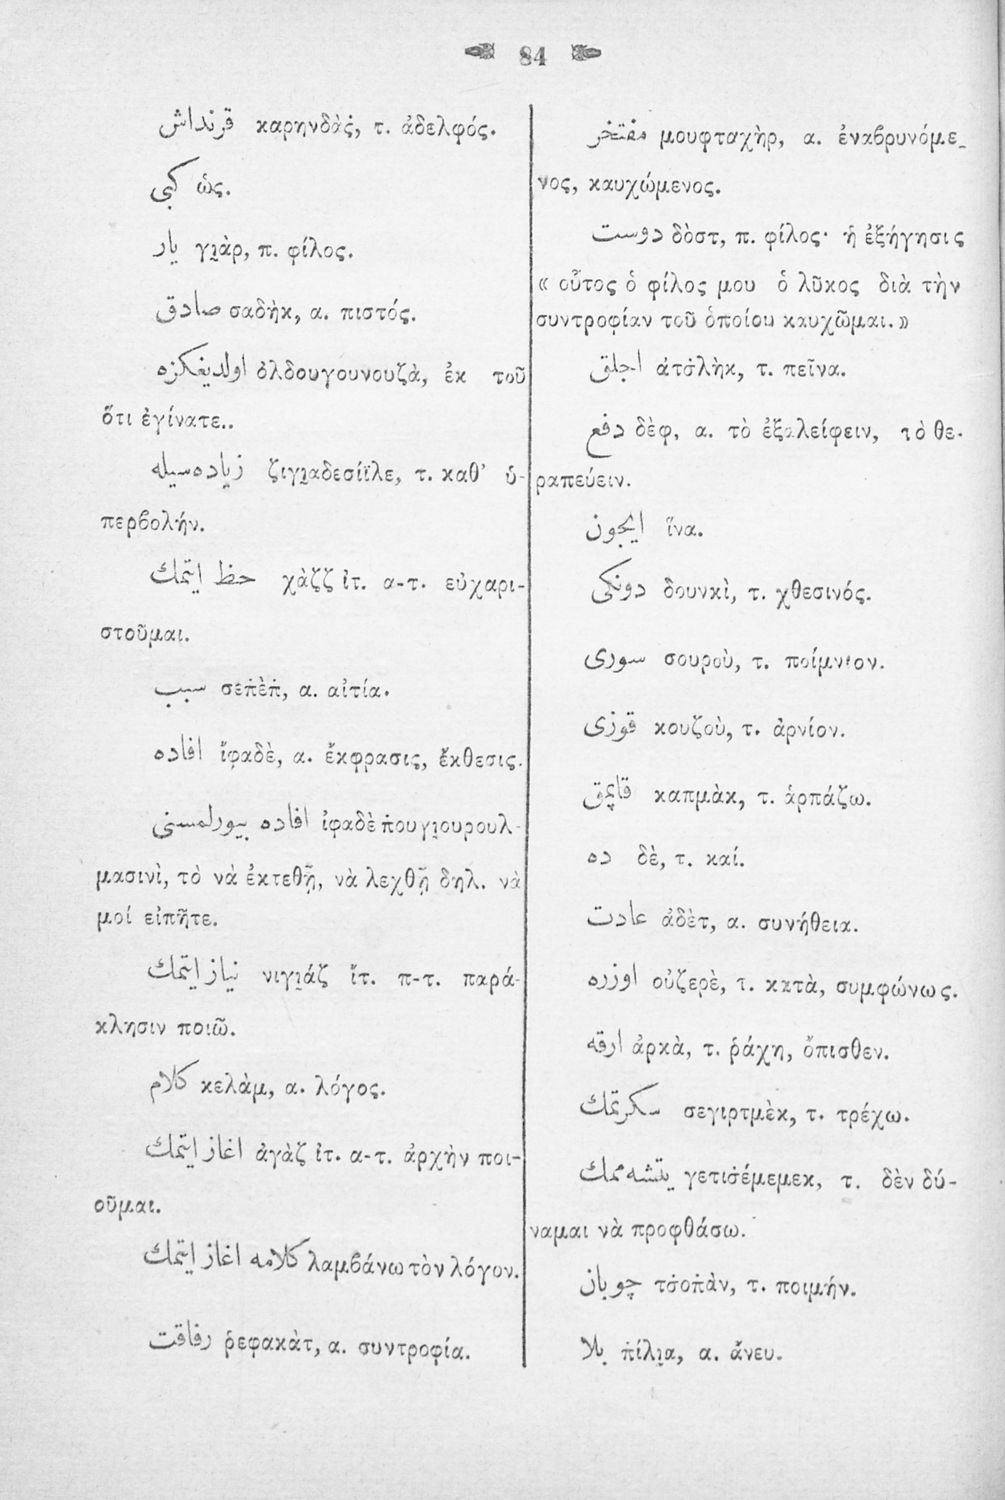 84
قرنداش καρηνδὰς̇, τ. ἀδελφός.
كبى ὡς.
يار γι̱ὰρ, π. φίλος.
صادق σαδὴκ, α. πιστός.
اولديغكزه ὀλδουγουνουζὰ, ἐκ τοῦ
ὅτι ἐγίνατε..
زياده‌سيله ζιγι̱αδεσίϊλε, τ. καθ’ ὑ-
περβολήν.
حظ ايتمك χὰζζ ἰτ. α-τ. εὐχαρι-
στοῦμαι.
سبب σεπ̇ὲπ̇, α. αἰτία.
افاده ἴφαδὲ, α. ἔκφρασις, ἔκθεσις.
افاده بيورلمسنى ἰφαδὲ π̇ουγι̱ουρουλ-
μασινὶ, τὸ νὰ ἐκτεθῇ, νὰ λεχθῇ δηλ. νὰ
μοί εἰπῆτε.
نياز ايتمك νιγι̱άζ ἴτ. π-τ. παρά-
κλησιν ποιῶ.
كلام κελὰμ, α. λόγος.
اغاز ايتمك ἀγὰζ ἰτ. α-τ. ἀρχὴν ποι-
οῦμαι.
كلامه اغاز ايتمك λαμβάνω τὸν λόγον.
رفاقت ῥεφακὰτ, α. συντροφία.
مفتخر μουφταχὴρ, α. ἐναβρυνόμε-
νος, καυχώμενος.
دوست δὸστ, π. φίλος· ἡ ἐξήγησις
« οὗτος ὁ φίλος μου ὁ λῦκος διὰ τὴν
συντροφίαν τοῦ ὁποίου καυχῶμαι. »
اجلق ἀτσ̇λὴκ, τ. πεῖνα.
دفع δὲφ, α. τὸ ἐξαλείφειν, τὸ θε-
ραπεύειν.
ايچون ἵνα.
دونكى δουνκὶ, τ. χθεσινός.
سورى σουροὺ, τ. ποίμνιον.
قوزى κουζοὺ, τ. ἀρνίον.
قاپمق καπμὰκ, τ. ἁρπάζω.
ده δὲ, τ. καί.
عادت ἀδὲτ, α. συνήθεια.
اوزره οὐζερὲ, τ. κατὰ, συμφώνως.
ارقه ἀρκὰ, τ. ῥάχη, ὄπισθεν.
سكرتمك σεγιρτμὲκ, τ. τρέχω.
يتشه‌ممك γετισ̇έμεμεκ, τ. δὲν δύ-
ναμαι νὰ προφθάσω.
چوبان τσ̇οπ̇ὰν, τ. ποιμήν.
بلا π̇ίλι̱α, α. ἄνευ.